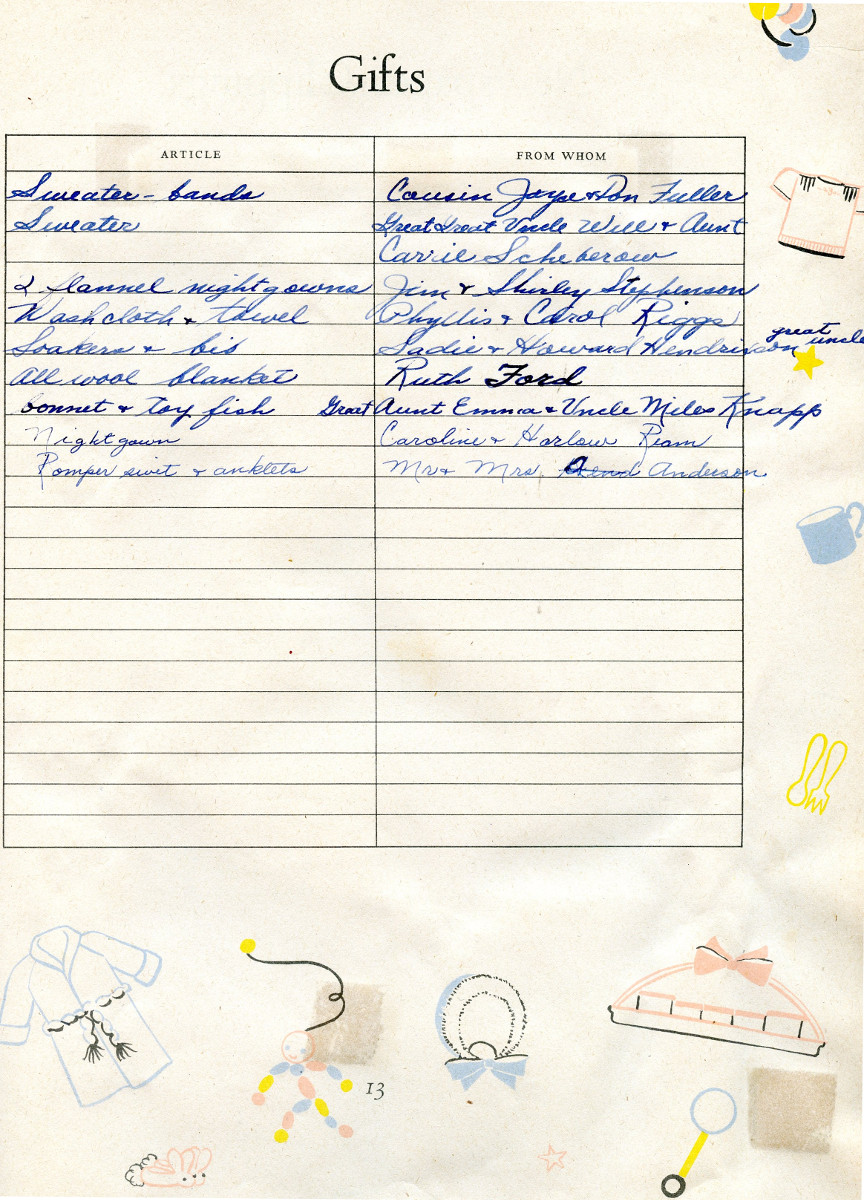 Gifts
ARTICLE FROM WHOM
Sweater - bands Cousin Jaye & Don Fuller
Sweater Great Great Uncle Will & Aunt
Carrie Scheberow
2 flannel nightgowns Jim & Shirley Stephenson
Washcloth & towel Phyllis & Carol Riggs
great uncle
Soakers & bib Sadie & Howard Hendrixson
All wool blanket Ruth Ford
bonnet & toy fish Great Aunt Emma & Uncle Miles Knapp
Nightgown Caroline & Harlow Ream
Romper suit & anklets Mr & Mrs. Anderson
13